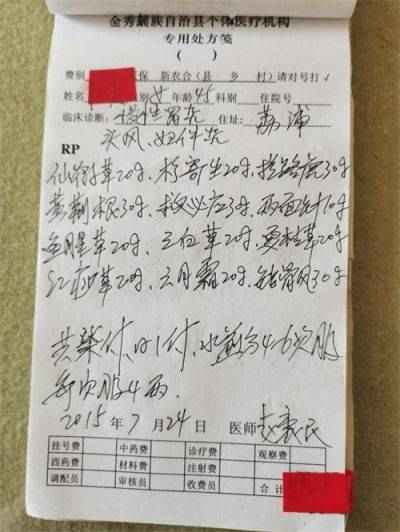 金秀瑶族自治县个体医疗机构
专用处方笺
( )
费别 医保 新农合(县 乡 村)请对号打√
姓名 性别 女 年龄 45 科别 住院号
临床诊断: 慢性胃炎 住址: 荔浦
头风、妇件炎
RP
仙鹤草20g、桑寄生20g、
黄荆根30g、救必应3g、两面针10g
鱼腥草20g、三白草20g、
草20g、六月霜20g、30g
共 付、日1付、水煎分4-6次服
每次服4两.
2015年7月24日 医师
挂号费 中药费 诊疗费 观察费
西药费 材料费 注射费
调配员 审核员 收费员 合计